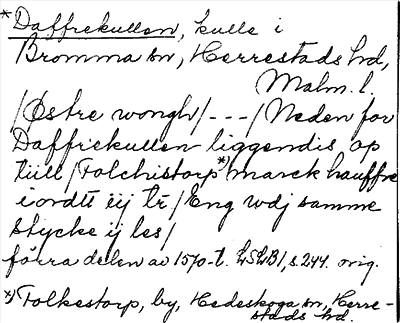 * Daffrekullen, kulle i
Bromma sn, Herrestads hd,
Malm. l.
/Østre wongh/ - - - /Neden for
Daffrekullen liggendis op
tiill /Folchistorp *) marck hauffre
iordtt iij tr̄ / Eng wdj samme
stycke ij les/
förra delen av 1570-t. LSLB1, s. 244. orig.
*) Folkestorp, by, Hedeskoga sn, Herre-
stads hd.